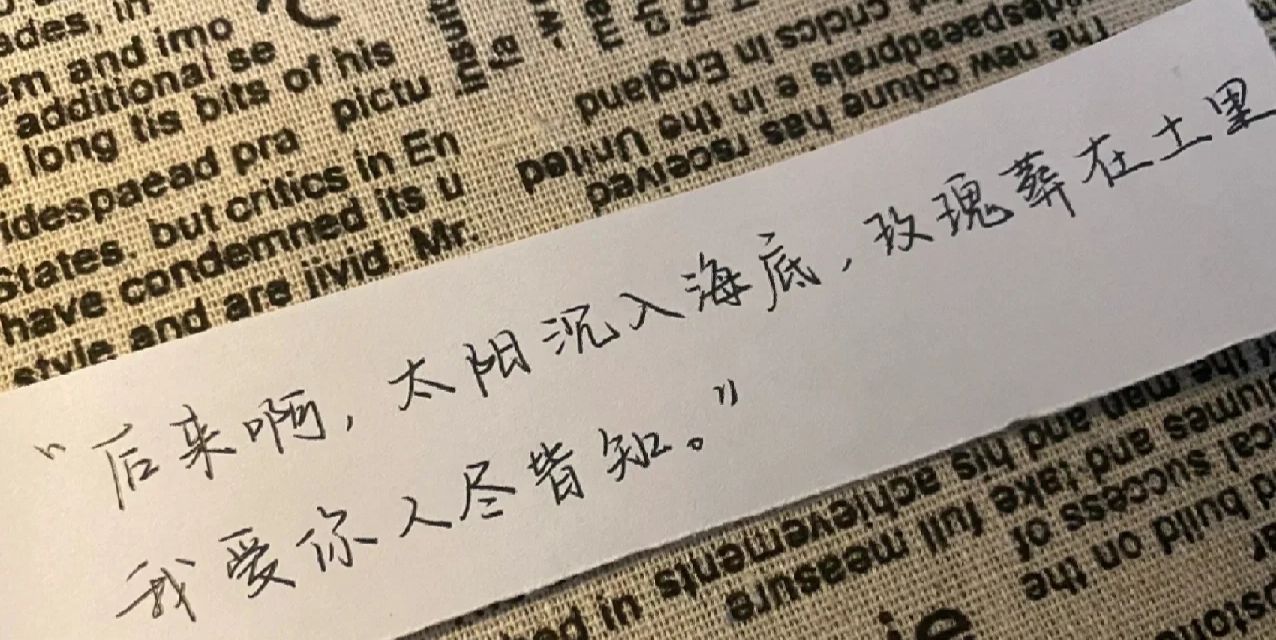 ades, in
em and imo
additional se
a long tis bits of his
idespaead pra pictu
States. but critics in En
have condemned its u
style and are jivid. Mr.
cricics in England
e in the United
The new cotune has raceived
“后来啊,太阳沉入海底,玫瑰葬在土里
我爱你人尽皆知。”
the man and his achievements
lumes and take full measure
ical success of
d build on the